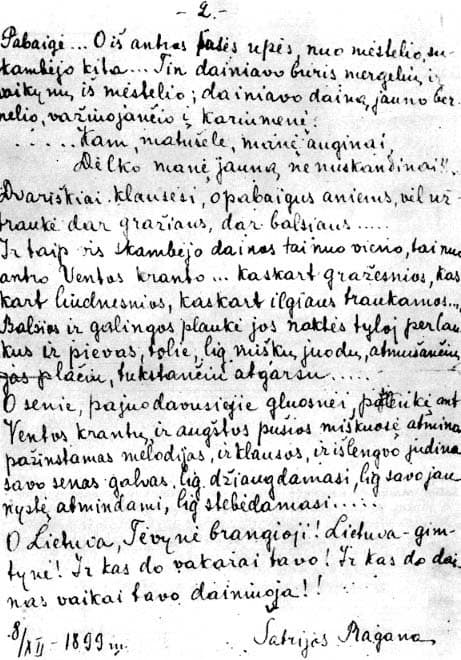 – 2. –
Pabaigė... O iš antros pusės upės, nuo mėstelio, su-
skambėjo kita... Tin dainiavo burïs mergeliu ir
vaikynu iš mėstelio; dainiavo daina jauno ber-
nelio, važiuojančio į kariumenė:
..... Kam, matušele, manė auginai,
Dėlko manė, jauna, nėnuskandinai!!..
Dvariškiai klausėsi, o pabaigus aniems, vėl už-
traukė dar gražiaus, dar balsiaus.....
Ir taip vis skambėjo dainos tai nuo vieno, tai nuo
antro Ventos kranto... kaskart gražesnios, kas
kart liudnesnios, kaskart ilgiaus traukamos...,
Balsios ir galingos plaukė jos naktės tyloj per lau-
kus ir pievas, tolie, lig mišku juodu, atmušančiu
jas plačiu, tukstančiu atgarsu.....
O senie, pajuodavusiejie gluosnei, palinkė ant
Ventos krantu, ir augštos pušios miškuosė atmina
pažinstamas mėlodijas, ir klausos, ir išlengvo judina
savo senas galvas, lig džiaugdamasi, lig savo jau-
nystė atmindami, lig stebėdamasi.....
O Lietuva, Tėvynė brangioji! Lietuva-gim-
tynė! Ir kas do vakarai tavo! Ir kas do dai-
nas vaikai tavo dainiuoja!!
8/XII – 1899 m. Šatrijos Ragana